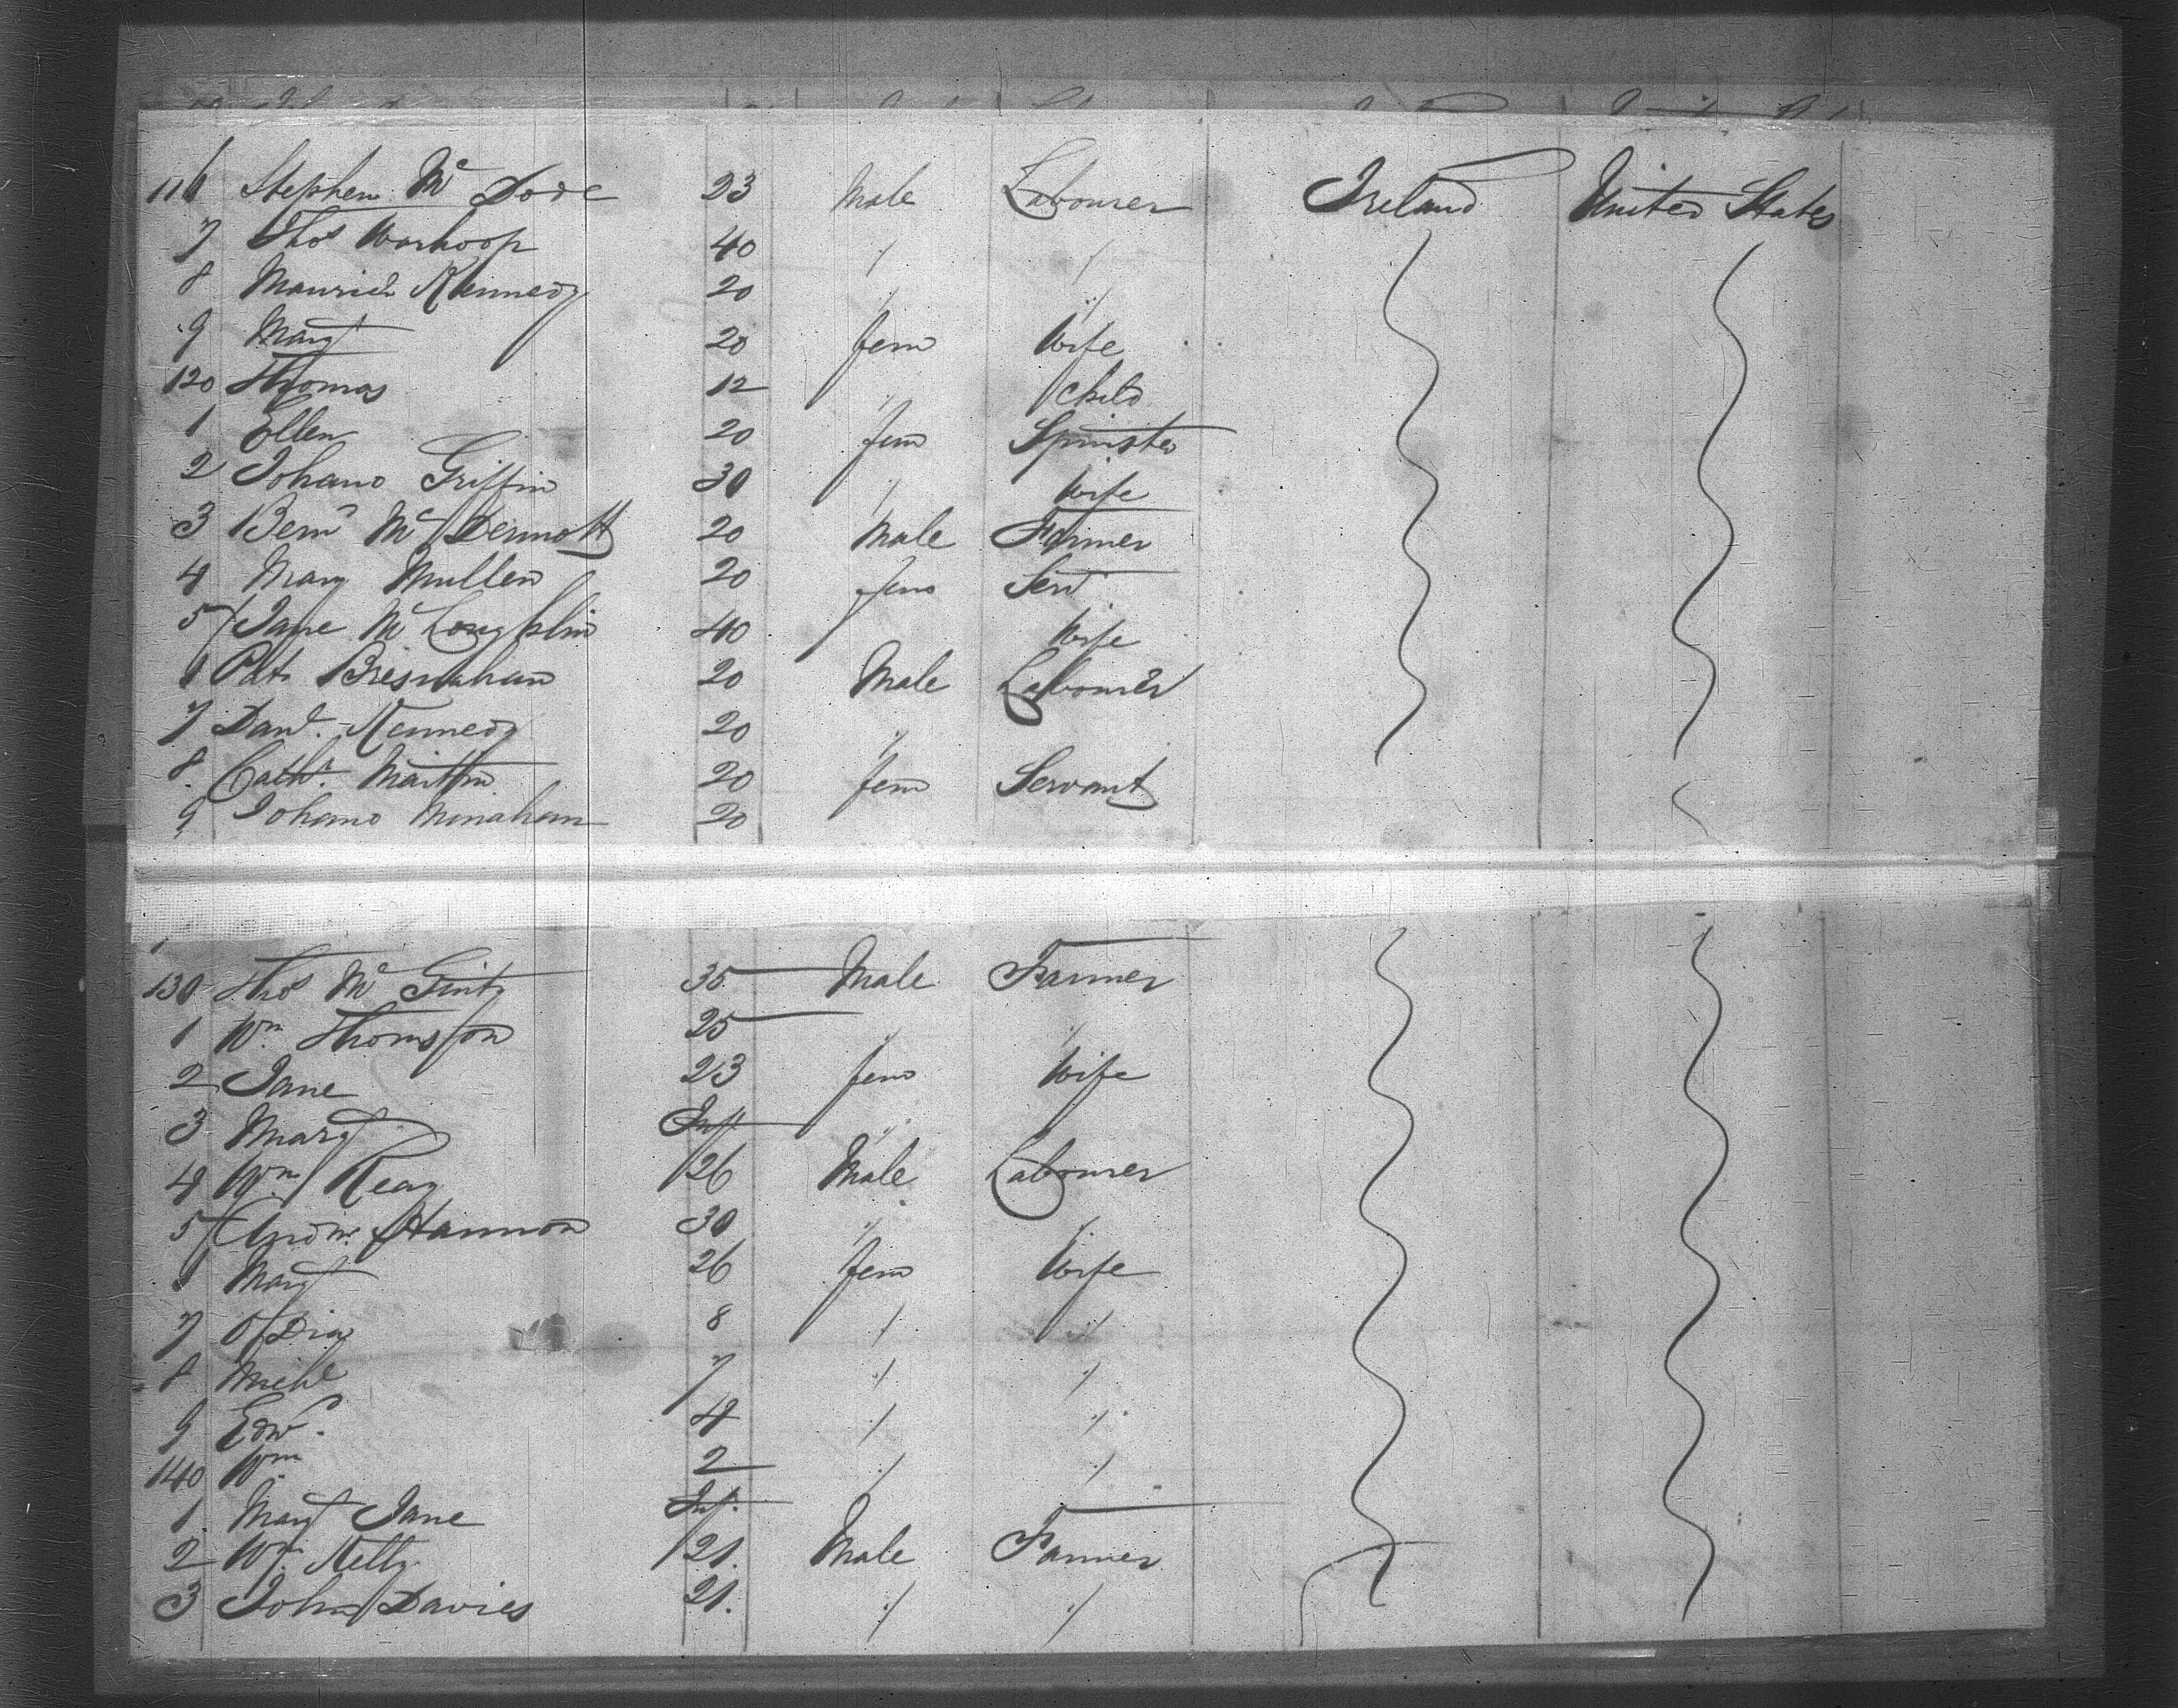 116 Stephen Mc Dode 23 Male Labourer Ireland United States
7 Thos Warhoop 40 " "
8 Maurice Kennedy 20 " "
9 Margt 20 fem Wife
120 Thomas 12 " Child
1 Ellen 20 fem Spinster
2 Johano Griffin 30 " Wife
3 Bernd Mc Dermott 20 Male Farmer
4 Mary Mullen 20 fem Servt
5 Jane Mc Loughlin 40 Wife
Pat. Bresnahan 20 Male Labourer
7 Danl. Kennedy 20 "
8 Cathe. Martin 20 fem Servant
9 Johano Minahan 20
130 Thos Mc Ginty 35 Male Farmer
1 Wm Thomson 25 " "
2 Jane 23 fem Wife
3 Margt Inft "
4 Wm Reay 26 Male Labourer
5 Andw. Hannon 30 " "
Margt 26 fem Wife
7 8 " "
8 Michl 7 " "
9 Edwd. 4 " "
140 Wm 2 " "
1 Margt Jane Inf.
2 Wm Kelly 21. Male Farmer
3 John Davies 21. " "